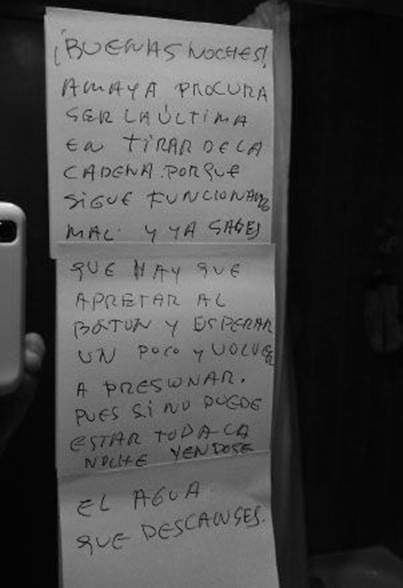 ¡BUENAS NOCHES!
AMAYA PROCURA
SER LA ÚLTIMA
EN TIRAR DE LA
CADENA. PORQUE
SIGUE FUNCIONANDO
MAL. Y YA SABES
QUE HAY QUE
APRETAR AL
BOTÓN Y ESPERAR
UN POCO Y VOLVER
A PRESIONAR.
PUES SI NO PUEDE
ESTAR TODA LA
NOCHE YENDOSE
EL AGUA.
QUE DESCANSES.